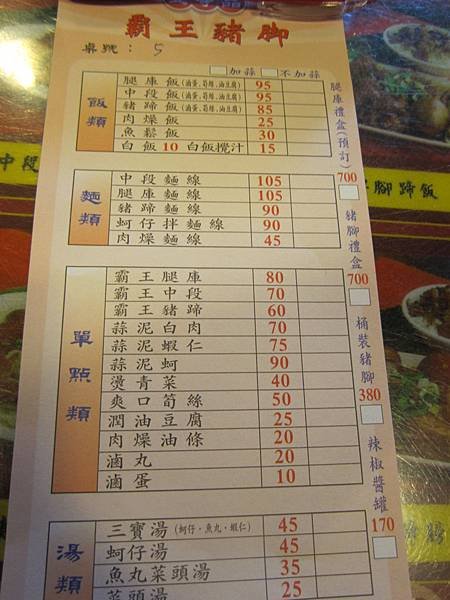 霸王豬腳
桌號： 5
加蒜 不加蒜
飯類
腿庫飯(滷蛋.筍絲.油豆腐) 95
中段飯(滷蛋.筍絲.油豆腐) 95
豬蹄飯(滷蛋.筍絲.油豆腐) 85
肉燥飯 25
魚鬆飯 30
白飯10 白飯攪汁 15
麵類
中段麵線 105
腿庫麵線 105
豬蹄麵線 90
蚵仔拌麵線 90
肉燥麵線 45
單點類
霸王腿庫 80
霸王中段 70
霸王豬蹄 60
蒜泥白肉 70
蒜泥蝦仁 75
蒜泥蚵 90
燙青菜 40
爽口筍絲 50
潤油豆腐 25
肉燥油條 20
滷丸 20
滷蛋 10
湯類
三寶湯(蚵仔、魚丸、蝦仁) 45
蚵仔湯 45
魚丸菜頭湯 35
菜頭湯 25
腿庫禮盒(預訂) 700
豬腳禮盒 700
桶裝豬腳 380
辣椒醬罐 170
中段
腳蹄飯